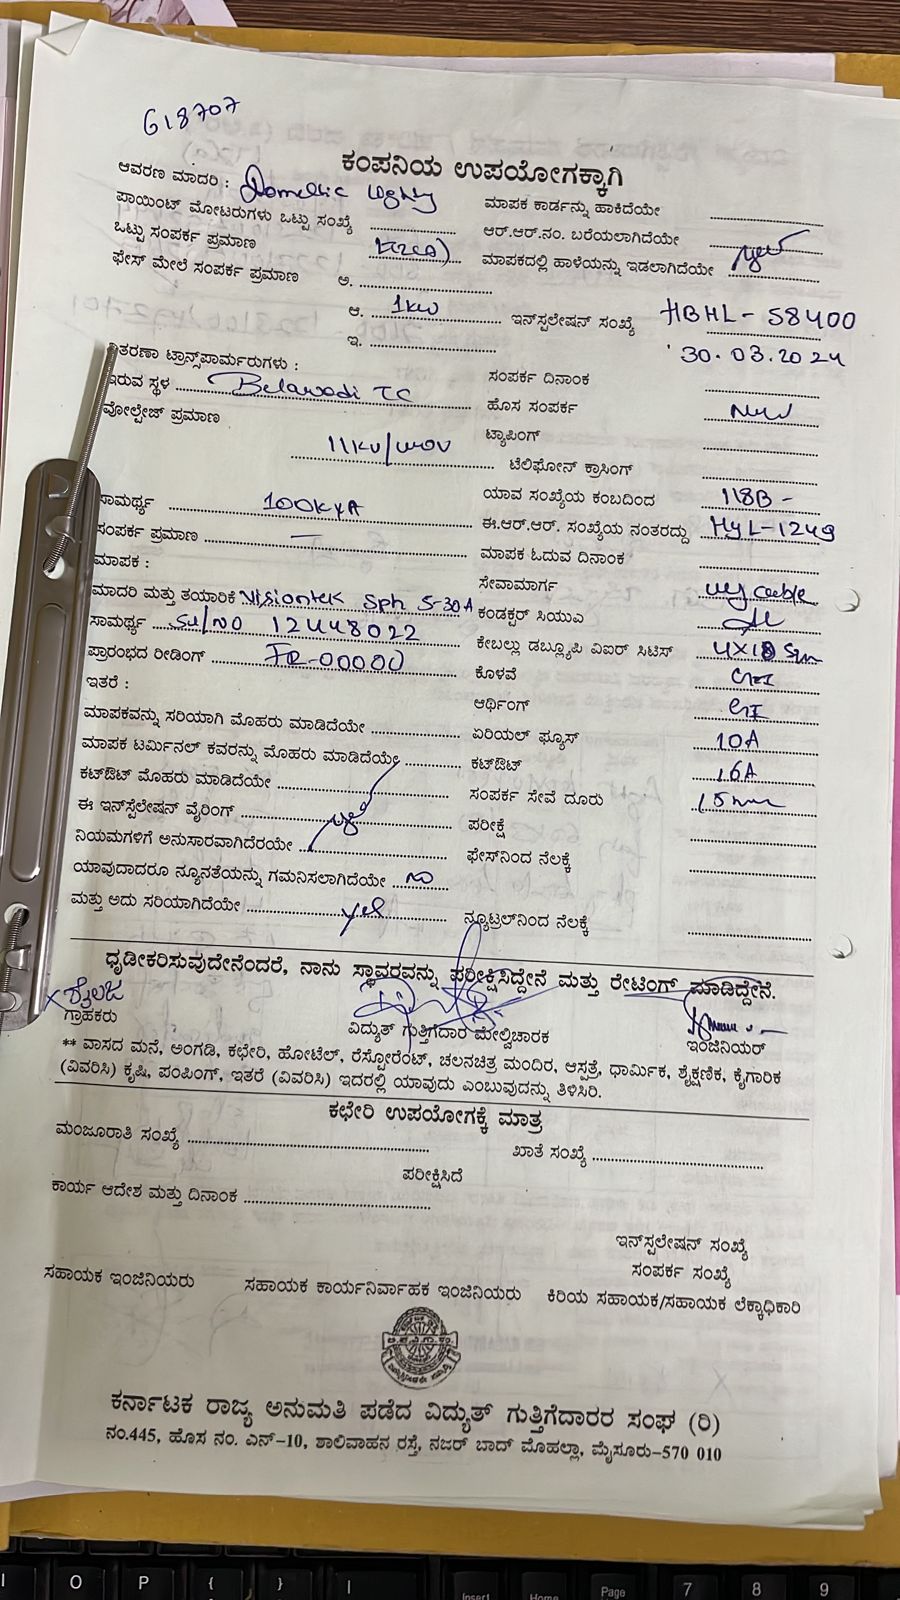 618707
ಕಂಪನಿಯ ಉಪಯೋಗಕ್ಕಾಗಿ
ಆವರಣ ಮಾದರಿ :
ಮಾಪಕ ಕಾರ್ಡನ್ನು ಹಾಕಿದೆಯೇ
ಪಾಯಿಂಟ್ ಮೋಟರುಗಳು ಒಟ್ಟು ಸಂಖ್ಯೆ
ಆರ್.ಆರ್.ನಂ. ಬರೆಯಲಾಗಿದೆಯೇ
ಒಟ್ಟು ಸಂಪರ್ಕ ಪ್ರಮಾಣ
ಮಾಪಕದಲ್ಲಿ ಹಾಳೆಯನ್ನು ಇಡಲಾಗಿದೆಯೇ
ಫೇಸ್ ಮೇಲೆ ಸಂಪರ್ಕ ಪ್ರಮಾಣ ಅ.
ಆ. 1kw
ಇನ್‌ಸ್ಪಲೇಷನ್ ಸಂಖ್ಯೆ HBHL-58400
ಇ.
30.03.2024
ವಿತರಣಾ ಟ್ರಾನ್ಸ್‌ಪಾರ್ಮರುಗಳು :
ಸಂಪರ್ಕ ದಿನಾಂಕ
ಇರುವ ಸ್ಥಳ Belawadi TC
ಹೊಸ ಸಂಪರ್ಕ New
ವೋಲ್ಟೇಜ್ ಪ್ರಮಾಣ
ಟ್ಯಾಪಿಂಗ್
ಟೆಲಿಫೋನ್ ಕ್ರಾಸಿಂಗ್
ಸಾಮರ್ಥ್ಯ 100KVA
ಯಾವ ಸಂಖ್ಯೆಯ ಕಂಬದಿಂದ 118B-
ಸಂಪರ್ಕ ಪ್ರಮಾಣ
ಈ.ಆರ್.ಆರ್. ಸಂಖ್ಯೆಯ ನಂತರದ್ದು HyL-1249
ಮಾಪಕ :
ಮಾಪಕ ಓದುವ ದಿನಾಂಕ
ಮಾದರಿ ಮತ್ತು ತಯಾರಿಕೆ Visiontek Sph 5-30A
ಸೇವಾಮಾರ್ಗ UG cable
ಸಾಮರ್ಥ್ಯ Sl/No 12448022
ಕಂಡಕ್ಟರ್ ಸಿಯುಎ
ಪ್ರಾರಂಭದ ರೀಡಿಂಗ್ FR-00000
ಕೇಬಲ್ಲು ಡಬ್ಲ್ಯೂಪಿ ವಿಐರ್ ಸಿಟಿಸ್
ಇತರೆ :
ಕೊಳವೆ GI
ಮಾಪಕವನ್ನು ಸರಿಯಾಗಿ ಮೊಹರು ಮಾಡಿದೆಯೇ
ಆರ್ಥಿಂಗ್ GI
ಮಾಪಕ ಟರ್ಮಿನಲ್ ಕವರನ್ನು ಮೊಹರು ಮಾಡಿದೆಯೇ
ಏರಿಯಲ್ ಫ್ಯೂಸ್ 10A
ಕಟ್‌ಔಟ್ ಮೊಹರು ಮಾಡಿದೆಯೇ
ಕಟ್‌ಔಟ್ 16A
ಈ ಇನ್‌ಸ್ಪೆಲೇಷನ್ ವೈರಿಂಗ್
ಸಂಪರ್ಕ ಸೇವೆ ದೂರು
ನಿಯಮಗಳಿಗೆ ಅನುಸಾರವಾಗಿದೆರಯೇ
ಪರೀಕ್ಷೆ
ಯಾವುದಾದರೂ ನ್ಯೂನತೆಯನ್ನು ಗಮನಿಸಲಾಗಿದೆಯೇ no
ಫೇಸ್‌ನಿಂದ ನೆಲಕ್ಕೆ
ಮತ್ತು ಅದು ಸರಿಯಾಗಿದೆಯೇ yes
ನ್ಯೂಟ್ರಲ್‌ನಿಂದ ನೆಲಕ್ಕೆ
ಧೃಡೀಕರಿಸುವುದೇನೆಂದರೆ, ನಾನು ಸ್ಥಾವರವನ್ನು ಪರೀಕ್ಷಿಸಿದ್ದೇನೆ ಮತ್ತು ರೇಟಿಂಗ್ ಮಾಡಿದ್ದೇನೆ.
ಶೈಲಜ
ಗ್ರಾಹಕರು
ವಿದ್ಯುತ್ ಗುತ್ತಿಗೆದಾರ ಮೇಲ್ವಿಚಾರಕ
ಇಂಜಿನಿಯರ್
** ವಾಸದ ಮನೆ, ಅಂಗಡಿ, ಕಛೇರಿ, ಹೋಟೆಲ್, ರೆಸ್ಟೋರೆಂಟ್, ಚಲನಚಿತ್ರ ಮಂದಿರ, ಆಸ್ಪತ್ರೆ, ಧಾರ್ಮಿಕ, ಶೈಕ್ಷಣಿಕ, ಕೈಗಾರಿಕ
(ವಿವರಿಸಿ) ಕೃಷಿ, ಪಂಪಿಂಗ್, ಇತರೆ (ವಿವರಿಸಿ) ಇದರಲ್ಲಿ ಯಾವುದು ಎಂಬುವುದನ್ನು ತಿಳಿಸಿರಿ.
ಕಛೇರಿ ಉಪಯೋಗಕ್ಕೆ ಮಾತ್ರ
ಮಂಜೂರಾತಿ ಸಂಖ್ಯೆ
ಖಾತೆ ಸಂಖ್ಯೆ
ಪರೀಕ್ಷಿಸಿದೆ
ಕಾರ್ಯ ಆದೇಶ ಮತ್ತು ದಿನಾಂಕ
ಇನ್‌ಸ್ಪಲೇಷನ್ ಸಂಖ್ಯೆ
ಸಂಪರ್ಕ ಸಂಖ್ಯೆ
ಸಹಾಯಕ ಇಂಜಿನಿಯರು
ಸಹಾಯಕ ಕಾರ್ಯನಿರ್ವಾಹಕ ಇಂಜಿನಿಯರು
ಕಿರಿಯ ಸಹಾಯಕ/ಸಹಾಯಕ ಲೆಕ್ಕಾಧಿಕಾರಿ
ಕರ್ನಾಟಕ ರಾಜ್ಯ ಅನುಮತಿ ಪಡೆದ ವಿದ್ಯುತ್ ಗುತ್ತಿಗೆದಾರರ ಸಂಘ (ರಿ)
ನಂ.445, ಹೊಸ ನಂ. ಎನ್-10, ಶಾಲಿವಾಹನ ರಸ್ತೆ, ನಜರ್ ಬಾದ್ ಮೊಹಲ್ಲಾ, ಮೈಸೂರು-570 010
O P { } |
Insert Home Page 7 8 9